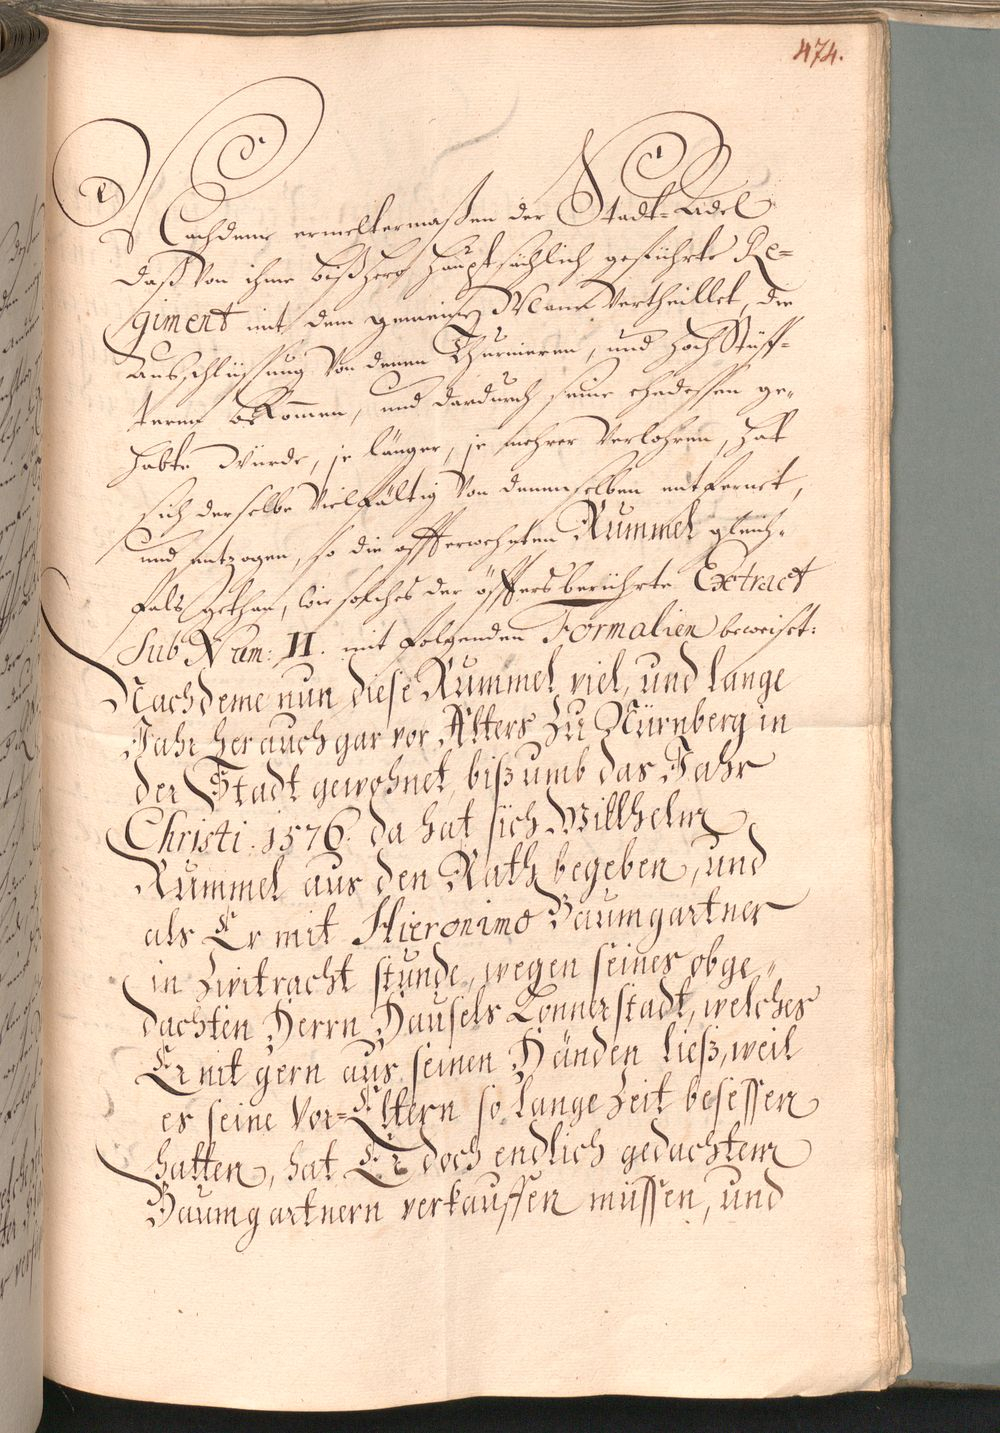 474.
Nachdeme ermeltermaßen der Stadt-Adel
daß von ihme bißhero hauptsächlich geführte Re-
giment mit dem gemeinen Mann vertheillet, die
Ausschlüssung von denen Thurnieren, und hoch Stüff-
tern bekommen, und dardurch seine ehedessen ge-
habte Würde, je länger, je mehrer verlohren, hat
sich derselbe vielfältig von denenselben entfernet,
und entzogen, so die offterwehnten Rummel gleich-
fals gethan, wie solches der öffters berührte Extract
Sub Num: II. mit folgenden Formalien beweiset:
Nachdeme nun diese Rummel viel, und lange
Jahr her auch gar vor Alters zu Nürnberg in
der Stadt gewohnet, biß umb das Jahr
Christi. 1576. da hat sich Willhelm
Rummel aus den Rath begeben, und
als Er mit Hieronimo Baumgartner
in Zwitracht stunde, wegen seines obge-
dachten Herrn Hausels Lonnerstadt, welches
Er nit gern aus seinen Händen ließ, weil
es seine Vor-Eltern so lange Zeit besessen
hatten, hat Er doch endlich gedachtem
Baumgartnern verkauffen müssen, und